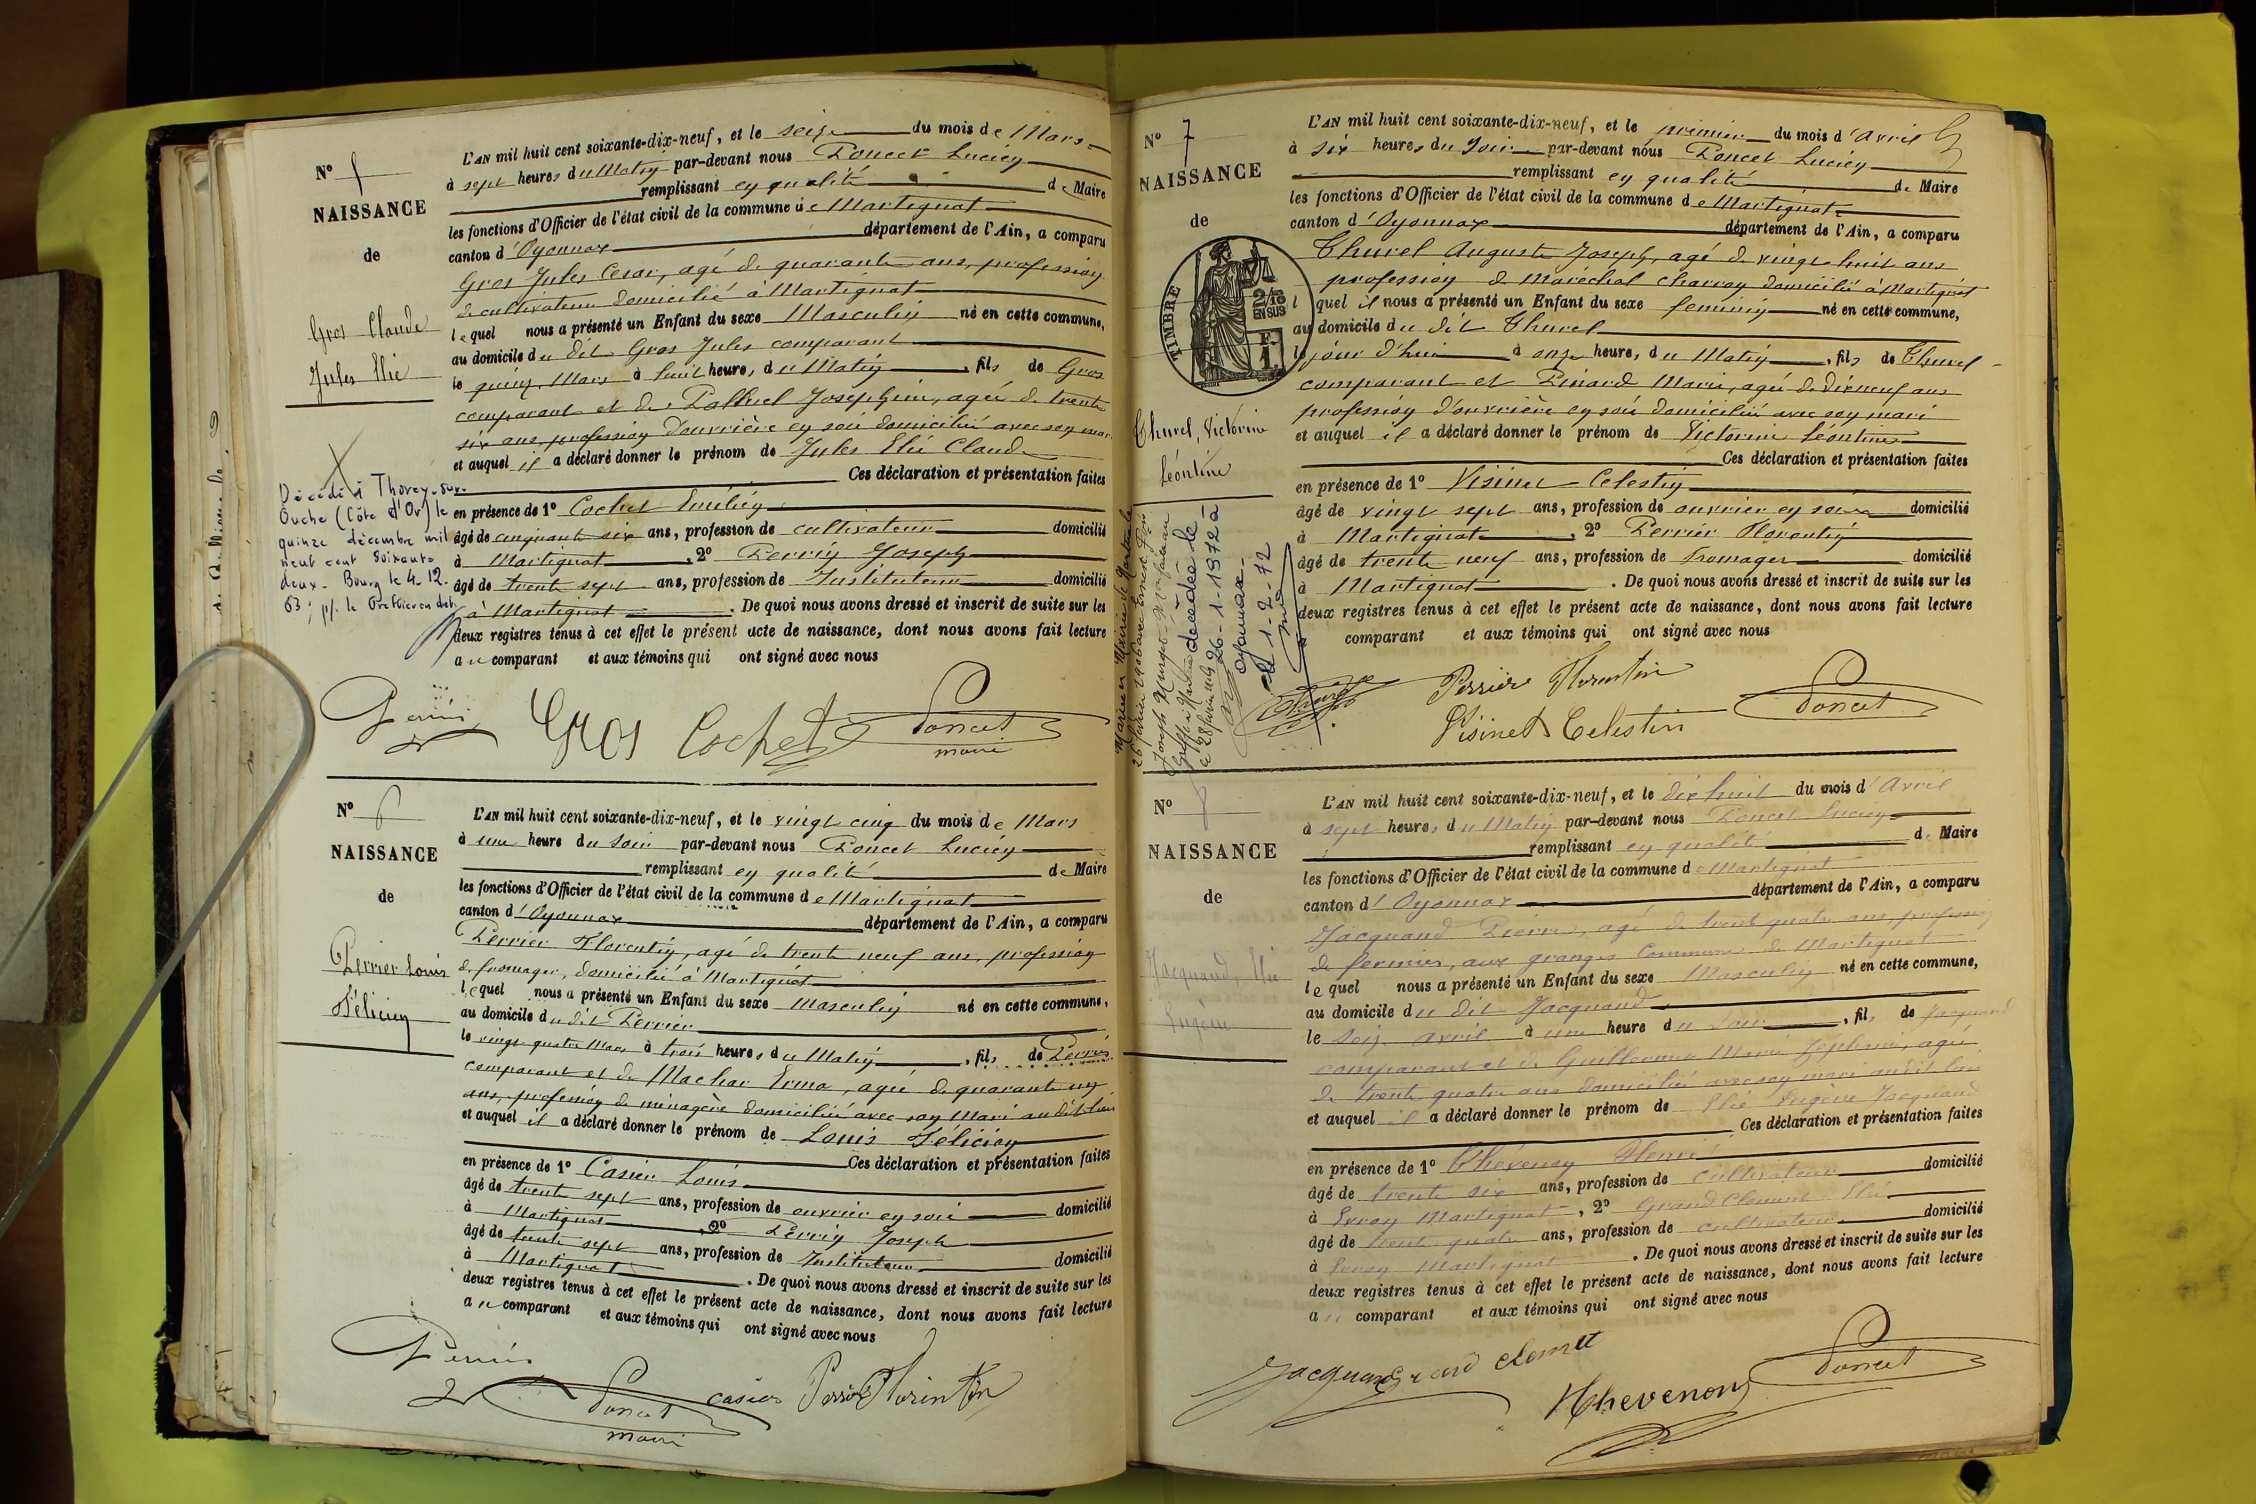 N° 5
NAISSANCE
de
Gros Claude
Jules Elie
Décédé à Thorey-sur-
Ouche (Côte d'Or) le
quinze décembre mil
neuf cent soixante
deux. Bourg le 4.12.
63 ; p/. le Greffier en chef.
L'AN mil huit cent soixante-dix-neuf, et le seize du mois de Mars
à sept heures du Matin par-devant nous Poncet Lucien
remplissant en qualité de Maire
les fonctions d'Officier de l'état civil de la commune de Martignat
canton d'Oyonnax département de l'Ain, a comparu
Gros Jules Cesar, agé de quarante ans, profession
de cultivateur domicilié à Martignat
lequel nous a présenté un Enfant du sexe Masculin né en cette commune,
au domicile du dit Gros Jules comparant
le quinze Mars à huit heures du Matin, fils de Gros
comparant et de Josephine, agée de trente
six ans, profession d'ouvrière en soie domiciliée avec son mari
et auquel il a déclaré donner le prénom de Jules Elie Claude
Ces déclaration et présentation faites
en présence de 1° Cochet Emilien
âgé de cinquante six ans, profession de cultivateur domicilié
à Martignat, 2° Perrin Joseph
âgé de trente sept ans, profession de Instituteur domicilié
à Martignat. De quoi nous avons dressé et inscrit de suite sur les
deux registres tenus à cet effet le présent acte de naissance, dont nous avons fait lecture
au comparant et aux témoins qui ont signé avec nous
Perrin Gros Cochet Poncet
maire
N° 6
NAISSANCE
de
Perrier Louis
Félicien
L'AN mil huit cent soixante-dix-neuf, et le vingt cinq du mois de Mars
à une heure du soir par-devant nous Poncet Lucien
remplissant en qualité de Maire
les fonctions d'Officier de l'état civil de la commune de Martignat
canton d'Oyonnax département de l'Ain, a comparu
Perrier Florentin, agé de trente neuf ans, profession
de fromager, domicilié à Martignat
lequel nous a présenté un Enfant du sexe Masculin né en cette commune,
au domicile du dit Perrier
le vingt quatre Mars à trois heures du Matin, fils de Perrier
comparant et de Machar Erma, agée de quarante un
ans, profession de ménagère domiciliée avec son Mari au dit lieu
et auquel il a déclaré donner le prénom de Louis Félicien
Ces déclaration et présentation faites
en présence de 1° Casier Louis
âgé de trente sept ans, profession de ouvrier en soie domicilié
à Martignat, 2° Perrin Joseph
âgé de trente sept ans, profession de Instituteur domicilié
à Martignat. De quoi nous avons dressé et inscrit de suite sur les
deux registres tenus à cet effet le présent acte de naissance, dont nous avons fait lecture
au comparant et aux témoins qui ont signé avec nous
Perrin Poncet casier Perrier Florentin
maire
N° 7
NAISSANCE
de
TIMBRE
2/10
EN SUS
F.
1.
Thurel, Victorine
Léontine
Mariée
26 février 1906 avec
Joseph
le 28 février
décédée le
26-1-1972 à
Oyonnax
le 1-2-72
L'AN mil huit cent soixante-dix-neuf, et le premier du mois d'Avril
à six heures du Soir par-devant nous Poncet Lucien
remplissant en qualité de Maire
les fonctions d'Officier de l'état civil de la commune de Martignat
canton d'Oyonnax département de l'Ain, a comparu
Thurel Auguste Joseph, agé de vingt huit ans
profession de Maréchal charron domicilié à Martignat
lequel il nous a présenté un Enfant du sexe feminin né en cette commune,
au domicile du dit Thurel
le jour d'hui à onze heures du Matin, fils de Thurel
comparant et Pinard Marie, agée de dixneuf ans
profession d'ouvrière en soie domiciliée avec son mari
et auquel il a déclaré donner le prénom de Victorine Léontine
Ces déclaration et présentation faites
en présence de 1° Visinet Celestin
âgé de vingt sept ans, profession de ouvrier en soie domicilié
à Martignat, 2° Perrier Florentin
âgé de trente neuf ans, profession de Fromager domicilié
à Martignat. De quoi nous avons dressé et inscrit de suite sur les
deux registres tenus à cet effet le présent acte de naissance, dont nous avons fait lecture
comparant et aux témoins qui ont signé avec nous
Thurel Perrier Florentin
Visinet Celestin Poncet
N° 8
NAISSANCE
de
Jacquand, Elie
Eugène
L'AN mil huit cent soixante-dix-neuf, et le dix huit du mois d'Avril
à sept heures du Matin par-devant nous Poncet Lucien
remplissant en qualité de Maire
les fonctions d'Officier de l'état civil de la commune de Martignat
canton d'Oyonnax département de l'Ain, a comparu
Jacquand Pierre, agé de trente quatre ans, profession
de fermier, aux granges Commune de Martignat
lequel nous a présenté un Enfant du sexe Masculin né en cette commune,
au domicile du dit Jacquand
le seize avril à une heure du Soir, fils de Jacquand
comparant et de Marie, agée
de trente quatre ans domiciliée avec son mari au dit lieu
et auquel il a déclaré donner le prénom de Elie Eugène Jacquand
Ces déclaration et présentation faites
en présence de 1° Thévenon Henri
âgé de trente six ans, profession de cultivateur domicilié
à Evron Martignat, 2° Grand Clement Elie
âgé de trente quatre ans, profession de cultivateur domicilié
à Evron Martignat. De quoi nous avons dressé et inscrit de suite sur les
deux registres tenus à cet effet le présent acte de naissance, dont nous avons fait lecture
au comparant et aux témoins qui ont signé avec nous
Jacquand Grand clement
Thevenon Poncet